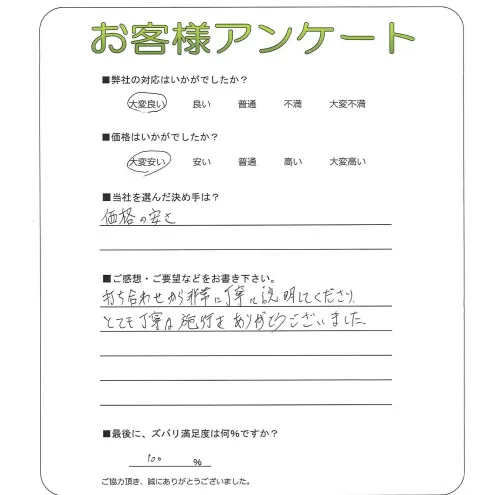 お客様アンケート
■弊社の対応はいかがでしたか?
大変良い 良い 普通 不満 大変不満
■価格はいかがでしたか?
大変安い 安い 普通 高い 大変高い
■当社を選んだ決め手は?
価格の安さ
■ご感想・ご要望などをお書き下さい。
打ち合わせから非常に丁寧に説明してくださり、
とても丁寧な施行をありがとうございました。
■最後に、ズバリ満足度は何%ですか?
100 %
ご協力頂き、誠にありがとうございました。